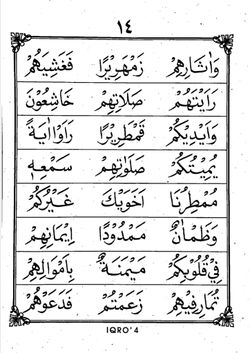 ١٤
وَاٰثَارِهِمْ زَمْهَرِيْرًا فَغَشِيَهُمْ
رَاَيْتَهُمْ صَلَاتِهِمْ خَاشِعُوْنَ
وَاَيْدِيَكُمْ قَمْطَرِيْرًا رَاَوْااٰيَةً
يُمِيْتُكُمْ صَلَوٰتِهِمْ سَمْعِهٖ
مُمْطِرُنَا اَخَوَيْكَ غَيْرُكُمْ
وَظَمْاٰنُ مَمْدُوْدًا اِيْمَانِهِمْ
فِيْ قُلُوْبِكُمْ مَيْمَنَةٌ بِاَمْوَالِهِمْ
تُمَارِفِيْهِمْ زَعَمْتُمْ فَدَعَوْهُمْ
IQRO' 4